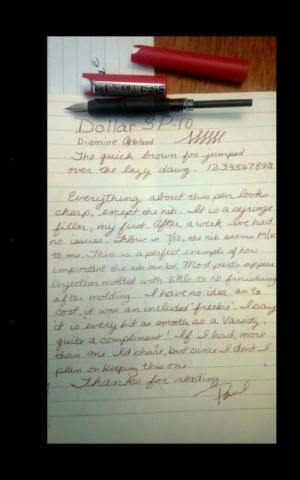 DOLLAR
Dollar SP-10
Diamine Oxblood
The quick brown fox jumped
over the lazy dawg. 1234567890
Everything about this pen looks
cheap, except the nib. It is a syringe
filler, my first. After a week I've had
no issues. Flow is 7/10, the nib seems M/F
to me. This is a perfect example of how
important the nib can be. Most parts appear
injection molded with little to no finishing
after molding. I have no idea as to
cost, it was an included "freebie". I say
it is every bit as smooth as a Varsity,
quite a compliment! If I had more
than one I'd share, but since I don't I
plan on keeping this one.
Thanks for reading
Paul